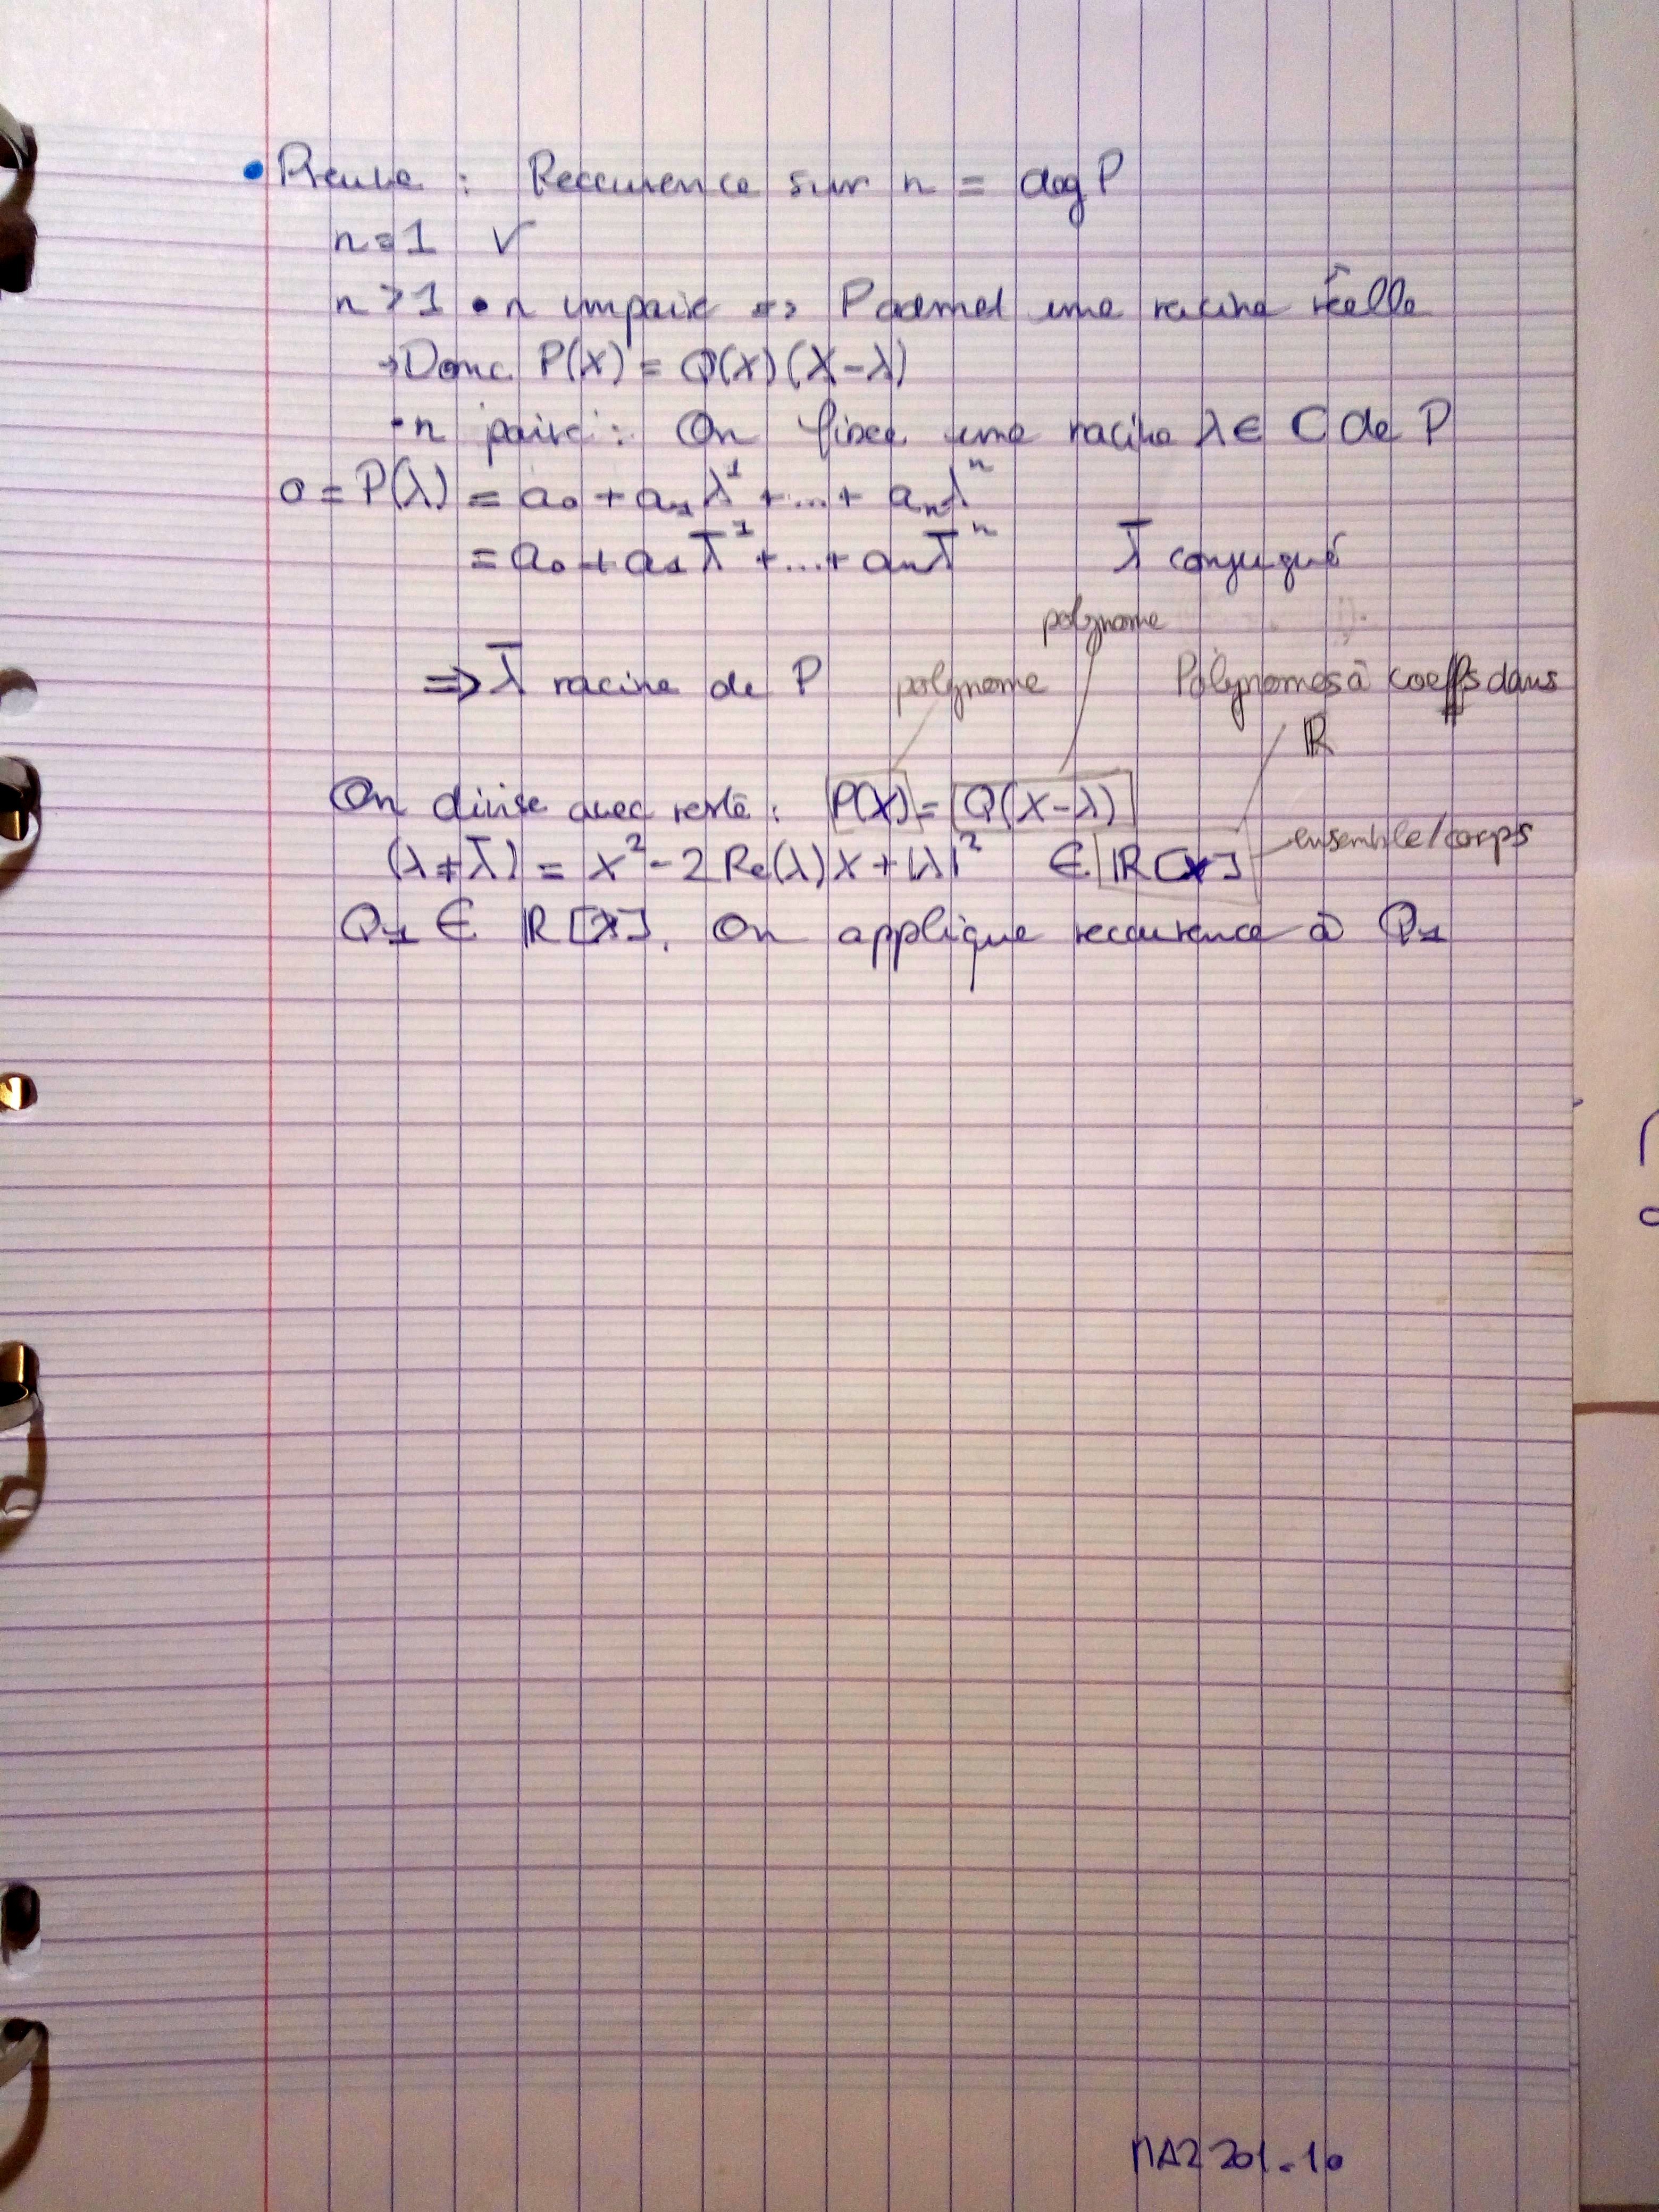 • Preuve : Reccurence sur n = deg P
n=1 ✓
n>1 • n impair => P admet une racine réelle
→ Donc P(X) = Q(X)(X-λ)
• n pair : On fixe une racine λ ∈ C de P
0 = P(λ) = a₀ + a₁λ¹ + ... + aₙλⁿ
= a₀ + a₁λ̄¹ + ... + aₙλ̄ⁿ λ̄ conjugué
polynome
=> λ̄ racine de P polynome Polynomes à coeffs dans
ℝ
On divise avec reste : P(X) = Q(X-λ)
(λ+λ̄) = X² - 2Re(λ)X + |λ|² ∈ ℝ[X] ensemble/corps
Q₁ ∈ ℝ[X]. On applique reccurence à Q₁
MA2201-10